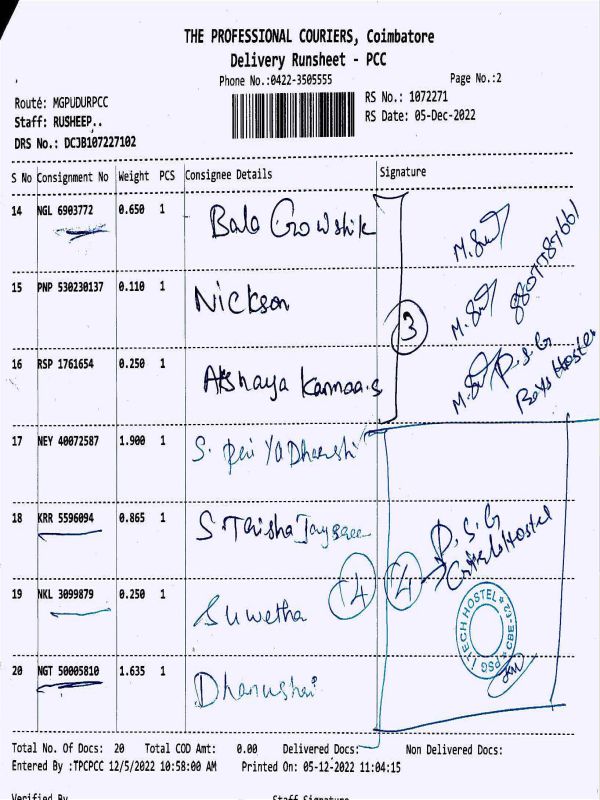 THE PROFESSIONAL COURIERS, Coimbatore
Delivery Runsheet - PCC
Phone No.:0422-3505555
Page No.:2
Routé: MGPUDURPCC
RS No.: 1072271
Staff: RUSHEEP..
RS Date: 05-Dec-2022
DRS No.: DCJB107227102
S No Consignment No Weight PCS Consignee Details Signature
14 NGL 6903772 0.650 1 Bala Gowshik
15 PNP 530230137 0.110 1 Nickson
3
16 RSP 1761654 0.250 1 Akshaya Kannaa.s
P.S.G
Boys Hostel
17 NEY 40072587 1.900 1 S.
18 KRR 5596094 0.865 1 S Tanisha Jaysree
P.S.G
Girls Hostel
19 NKL 3099879 0.250 1 Suwetha
4 4
PSG ITECH HOSTEL CBE-62
20 NGT 50005810 1.635 1
Total No. Of Docs: 20 Total COD Amt: 0.00 Delivered Docs: Non Delivered Docs:
Entered By :TPCPCC 12/5/2022 10:58:00 AM Printed On: 05-12-2022 11:04:15
Verified By Staff Signature